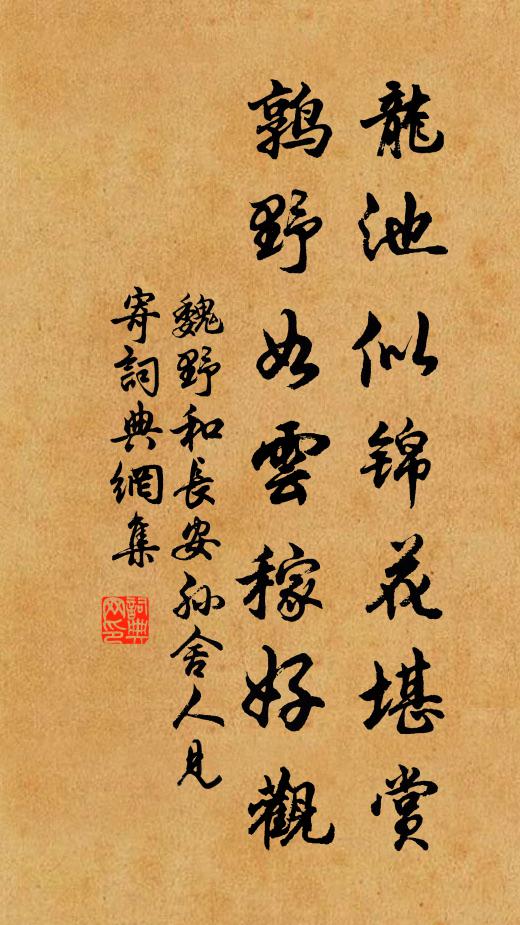 龍池似锦花堪赏
鹑野如雲稼好觀
魏野和長安孙舍人見
寄詞典網集
詞典
网印